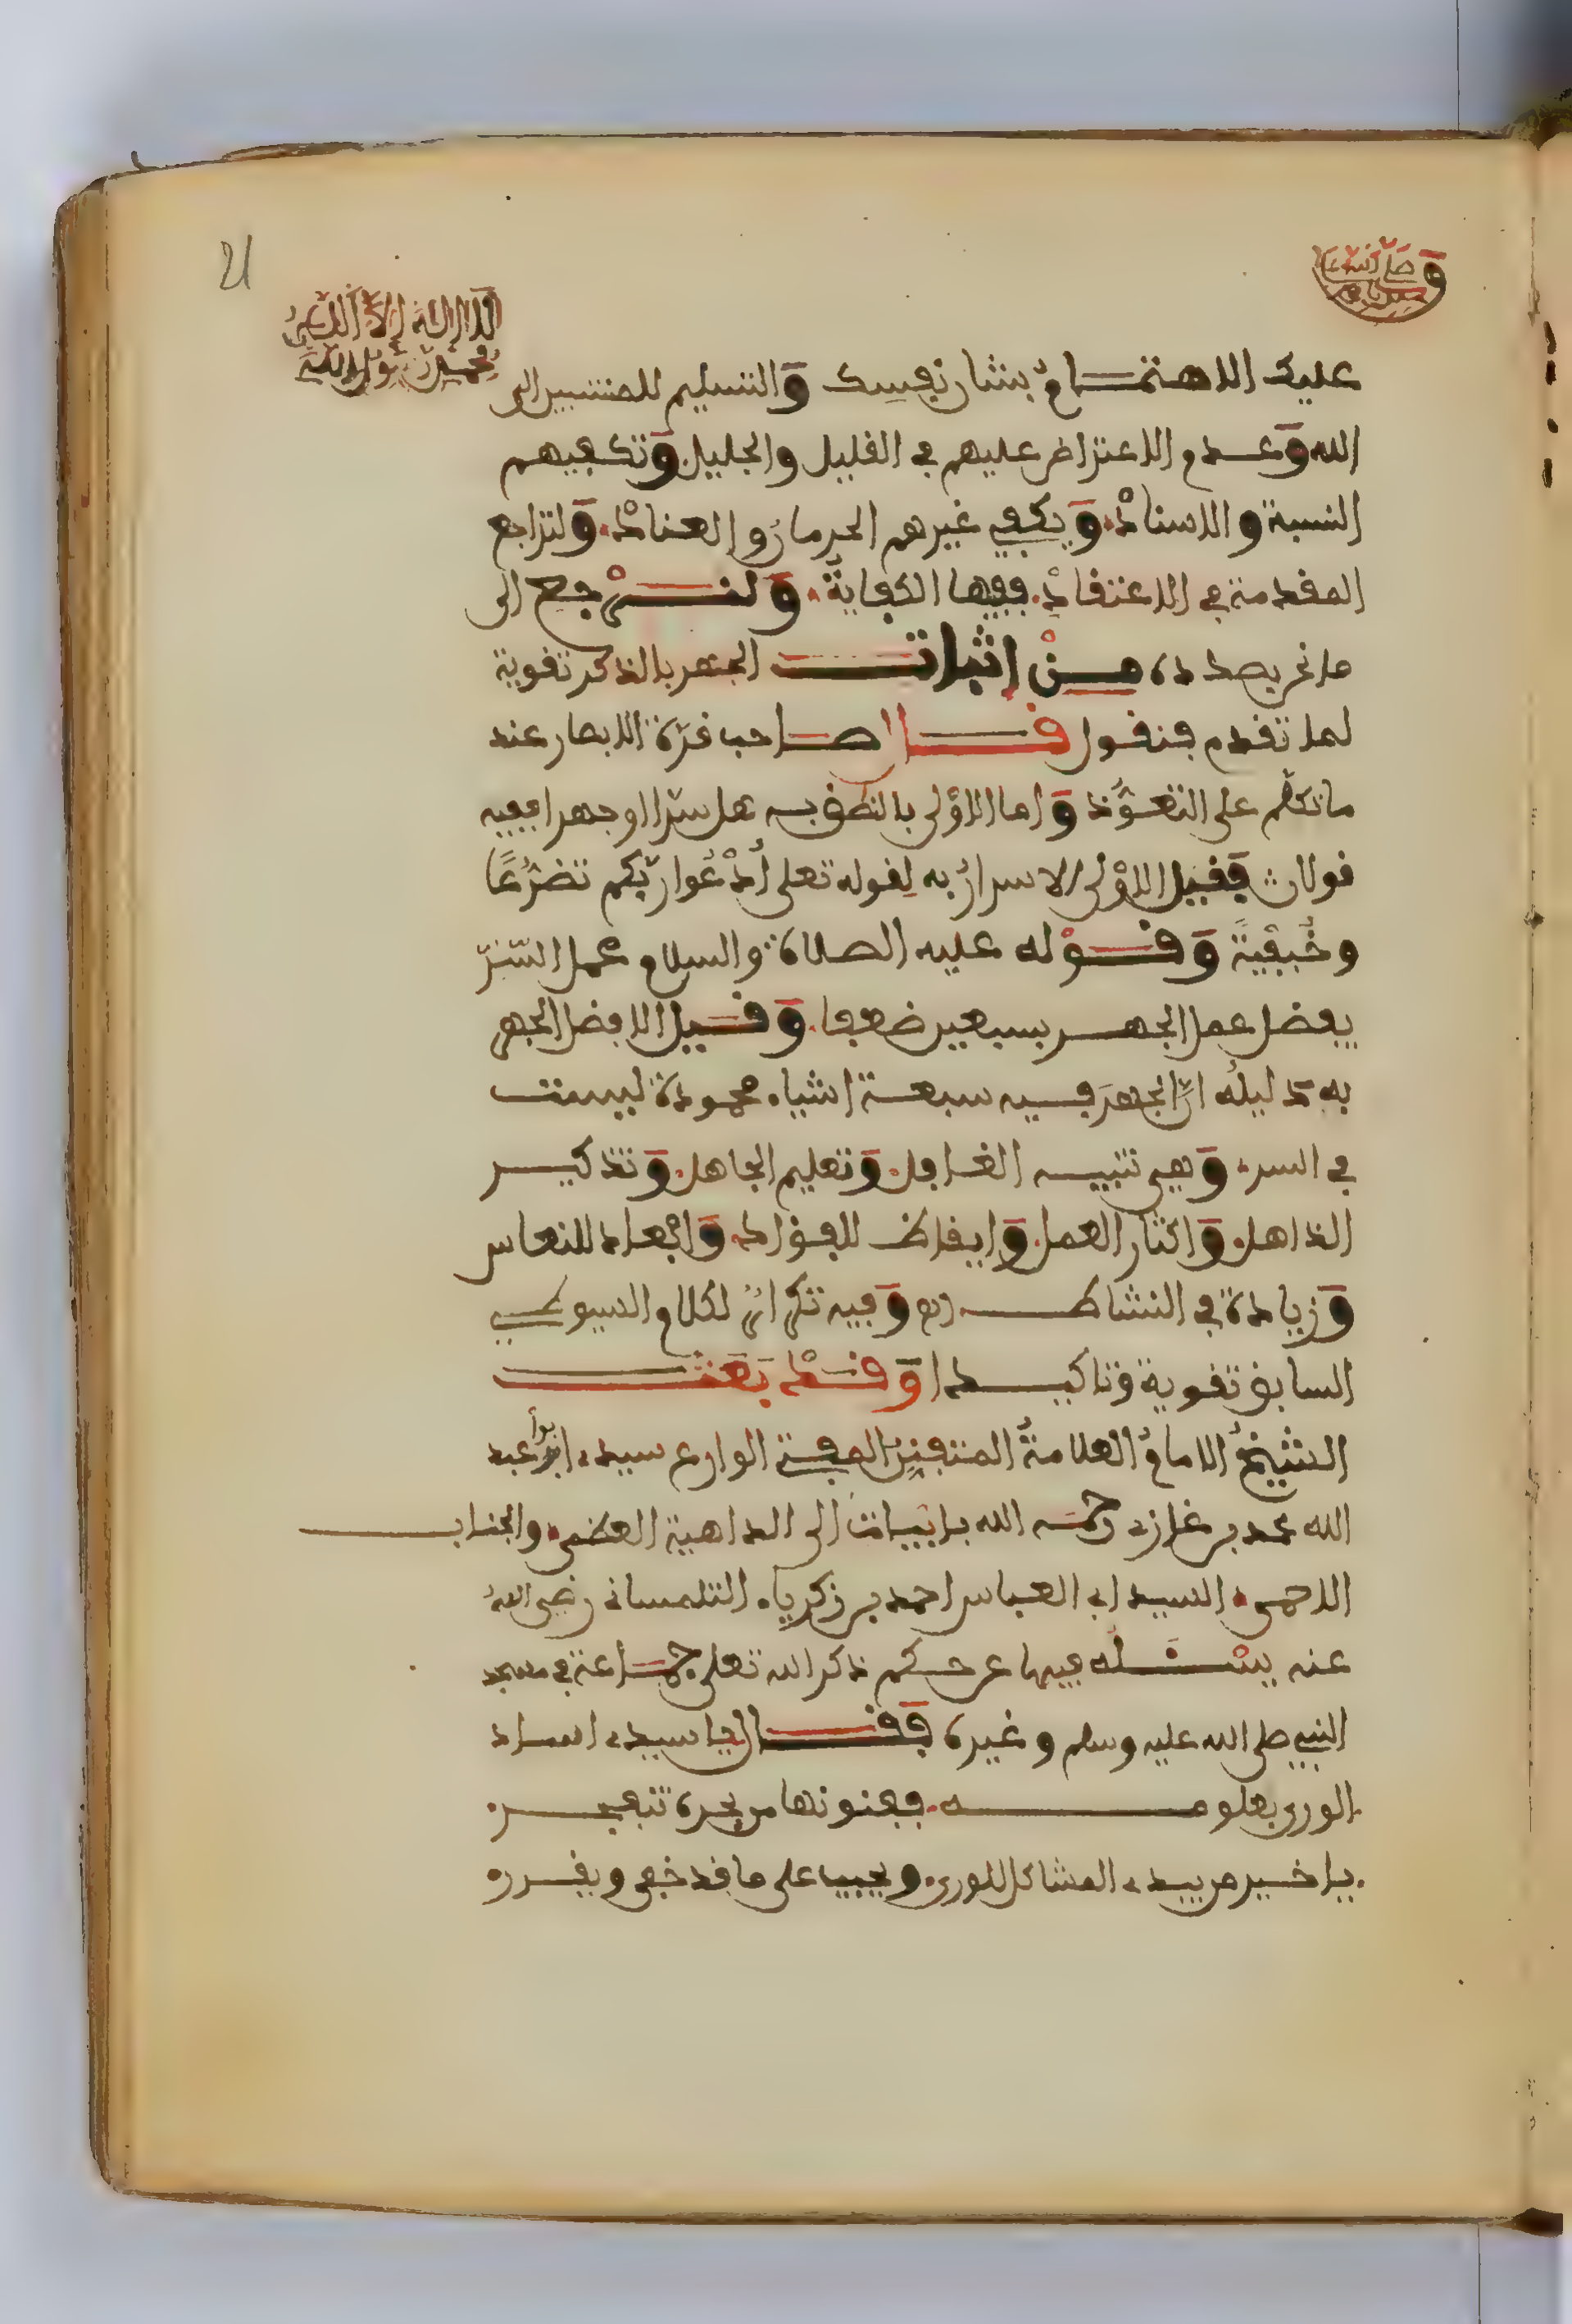 21
لا اله الا الله
محمد رسول الله
عليك الاهتمام بشان نفسك وَالتسليم للمنتسبين الى
الله وَعدم الاعتراض عليهم في القليل والجليل وَتكفيهم
النسبة والاسناد. وَيكفي غيرهم الحرمان والعناد. وَلتراجع
المقدمة في الاعتقاد. ففيها الكفايةُ. وَلنرْجع الى
ما نحن بصدده منْ اثبات الجهر بالذكر تقوية
لما تقدم فنقول قال صاحب قرّة الابصار عند
ما تكلّم على التعوُّذ وَاما الاوْلى بالنطق به هل سرّا او جهرا ففيه
قولان فَقيل الاوْلى الاسرارُ به لِقوله تعلى اُدْعُوا ربّكم تضرُّعًا
وخُفْيَةً وَقوْله عليه الصلاة والسلام عمل السّرّ
يفضل عمل الجهر بسبعين ضعفا. وَقيل الافضل الجهر
به دليله انّ الجهرَ فيه سبعة اشياء محمودة ليست
في السر. وَهي تنبيه الغافل. وَتعليم الجاهل. وَتذكير
الذاهل. وَاكثار العمل. وَايقاظ للفؤاد. وَابعاد للنعاس
وَزيادة في النشاط وَفيه تكرارٌ لكلام السيوطي
السابق تقوية وتاكيدا وَقدْ بَعَث
الشيْخُ الامامُ العلامةُ المتفنن المفتي الوارع سيدي ابوا عبد
الله محمد بن غازي رحمه الله بابيات الى الداهية العظمى. والجناب
الاحمى. السيد ابي العباس احمد بن زكرياء التلمساني رضي اللهُ
عنه يسْئَلُه فيها عن حكم ذكر الله تعلى جماعة في مسجد
النبي صلى الله عليه وسلم وغيره فَقال يا سيدي ساد
الورى بعلومه. ففنونها من بحره تتفجر.
يا خير من يبدي المشاكل للورى. ويجيب على ما قد خفى ويقرر.